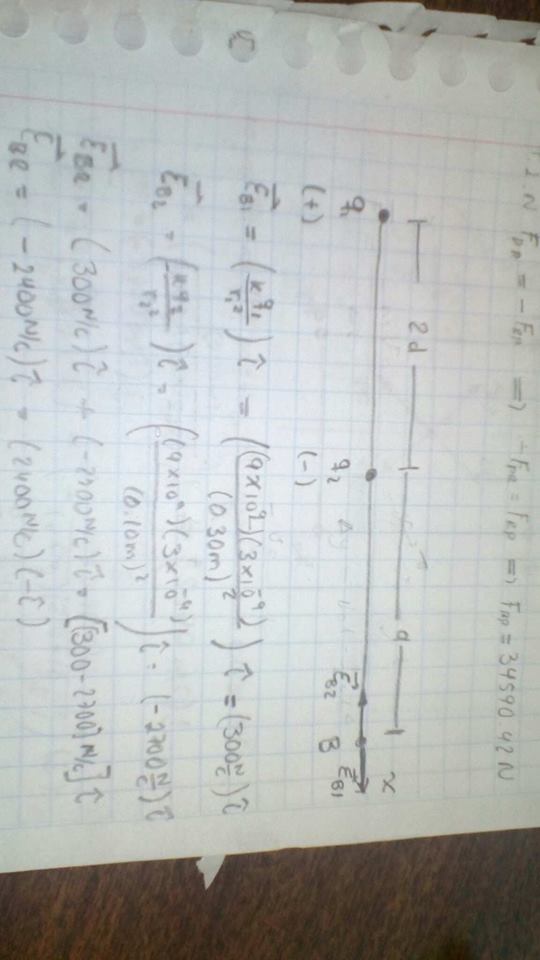 F_NP = -F_RN => -F_NR = F_NP => F_NP = 34590.42 N
2d d
q₁ q₂ E⃗_B2 B E⃗_B1 x
(+) (-)
E⃗_B1 = (K q₁ / r₁²) î = ((9x10⁹)(3x10⁻⁹) / (0.30m)²) î = (300 N/C) î
E⃗_B2 = (K q₂ / r₂²) î = ((9x10⁹)(3x10⁻⁹) / (0.10m)²) î = (-2700 N/C) î
E⃗_BR = (300N/C) î + (-2400N/C) î = [(300-2700) N/C] î
E⃗_BR = (-2400N/C) î = (2400N/C) (-î)